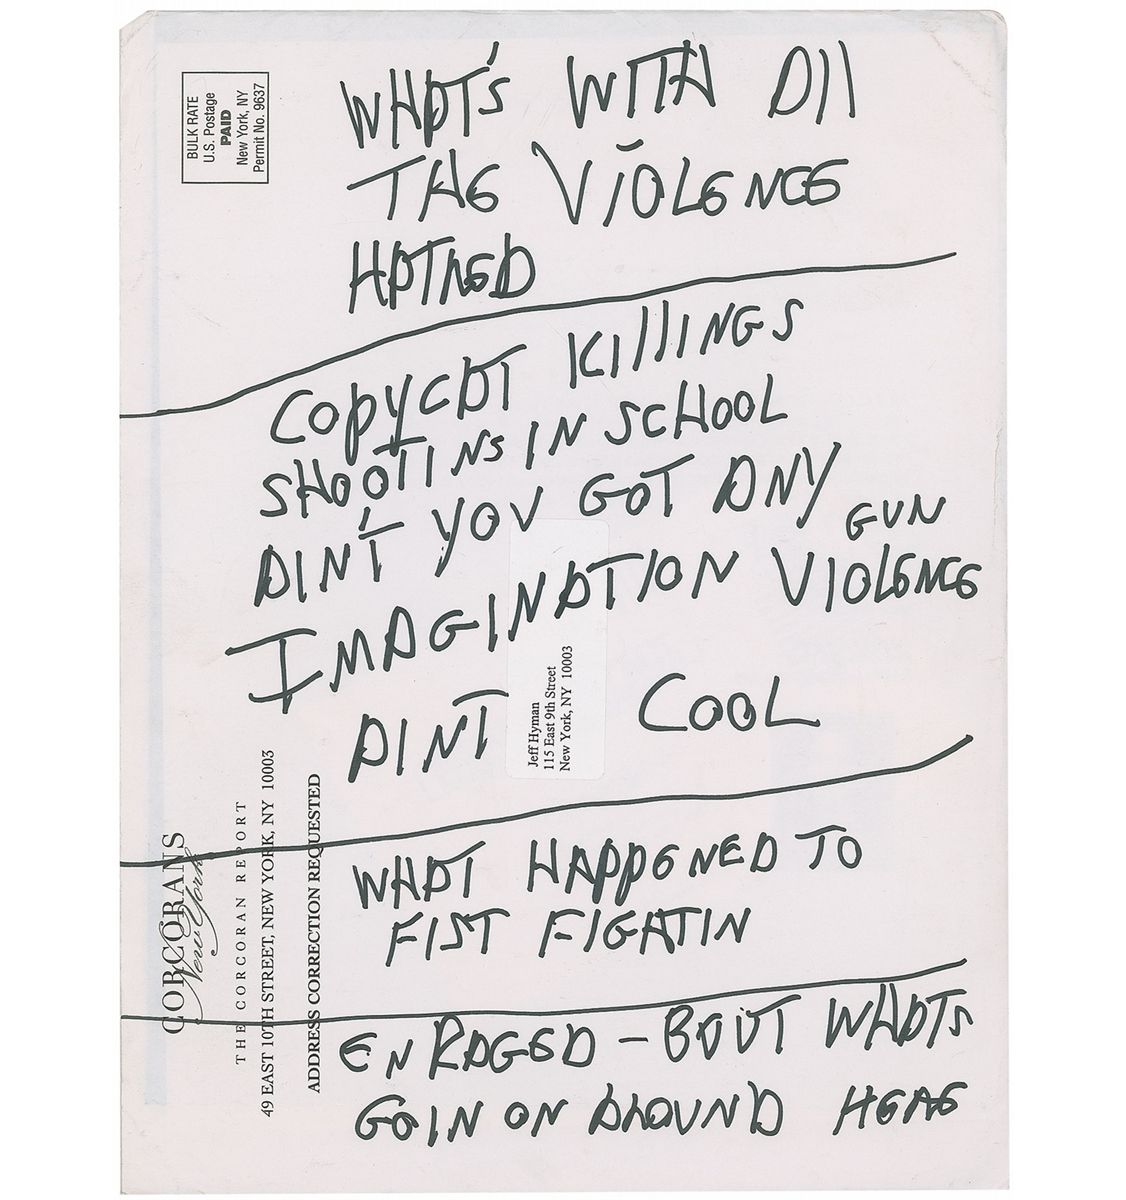 WHAT'S WITH All
THE VIOLENCE
HATRED
COPYCAT KIllINGS
SHOOTINS IN SCHOOL
AIN'T YOU GOT ANY
GUN
IMAGINATION VIOLENCE
AINT COOL
WHAT HAPPENED TO
FIST FIGHTIN
ENRAGED – BOUT WHATS
GOIN ON AROUND HERE
BULK RATE
U.S. Postage
PAID
New York, NY
Permit No. 9637
Jeff Hyman
115 East 9th Street
New York, NY 10003
CORCORANS
New York
THE CORCORAN REPORT
49 EAST 10TH STREET, NEW YORK, NY 10003
ADDRESS CORRECTION REQUESTED